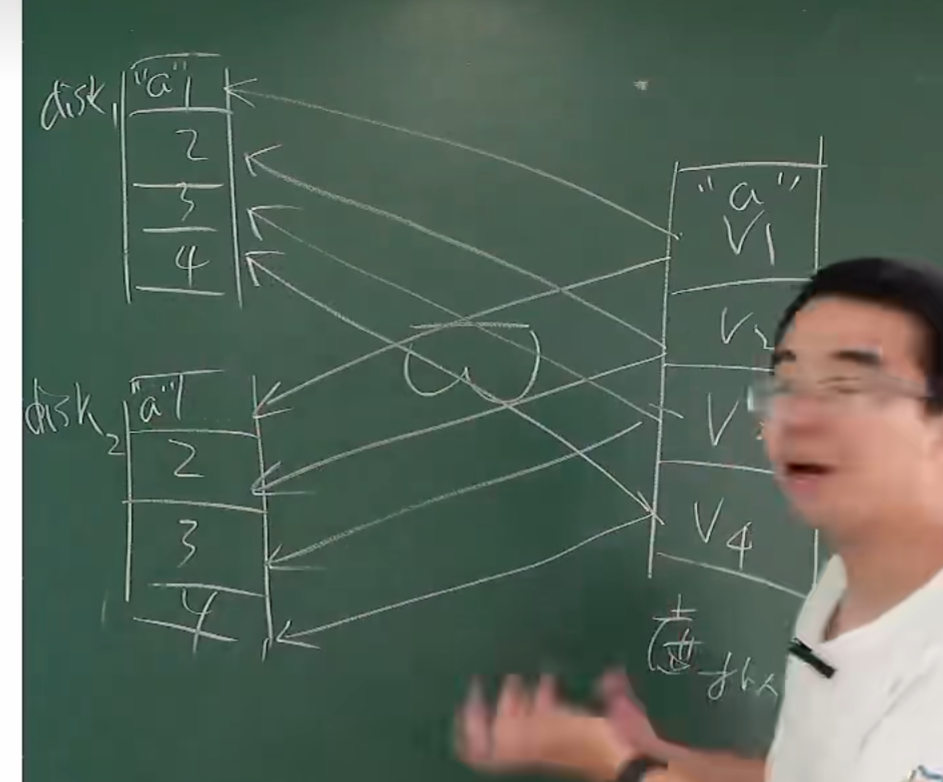 disk1
"a" 1
2
3
4
disk2
"a" 1
2
3
4
"a"
V1
V2
V
V4